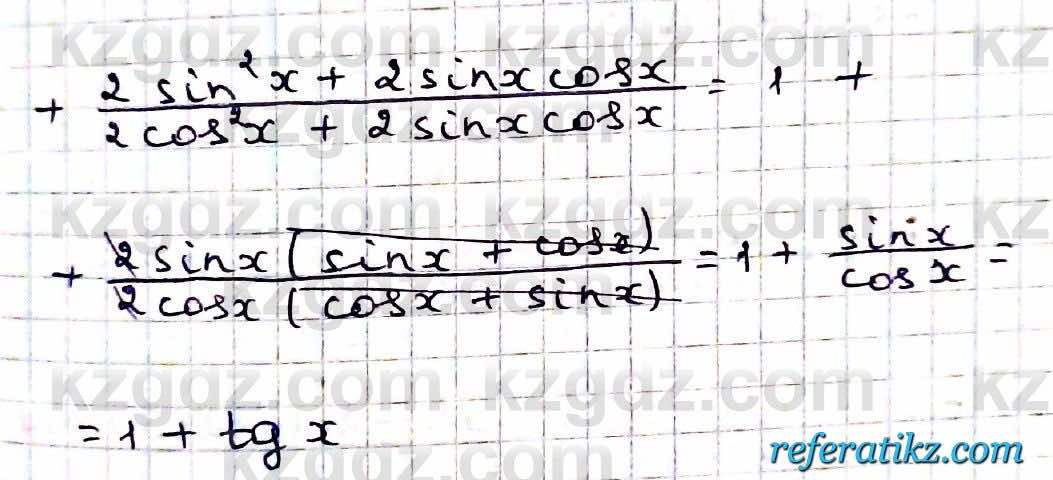 kzgdz.com kzgdz.com kz
+ (2 sin²x + 2 sinx cosx)/(2 cos²x + 2 sinx cosx) = 1 +
kzgdz.com kzgdz.com kz
+ 2 sinx (sinx + cosx)/2 cosx (cosx + sinx) = 1 + sinx/cosx =
kzgdz.com kzgdz.com kz
= 1 + tg x
referatikz.com